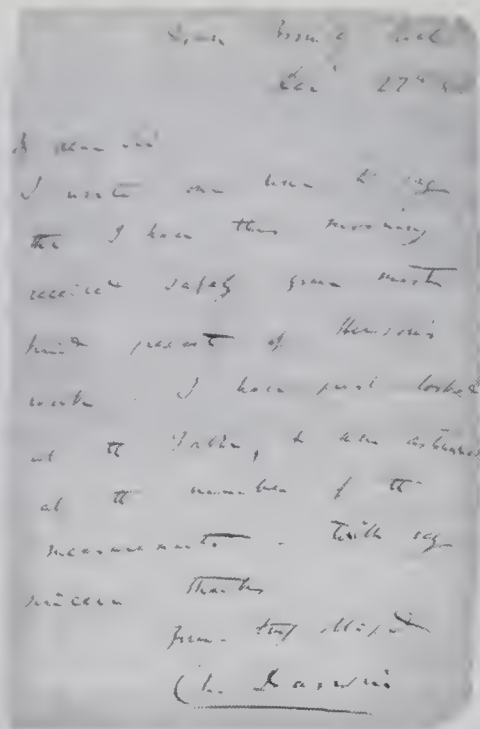 Down Bromley Kent
27th
My dear Sir
I write one line to say
that I have this morning
received safely your most
kind present of
work. I have just looked
at the Tables, & am astonished
at the number of the
measurements. With very
sincere thanks
yours truly obliged
Ch. Darwin